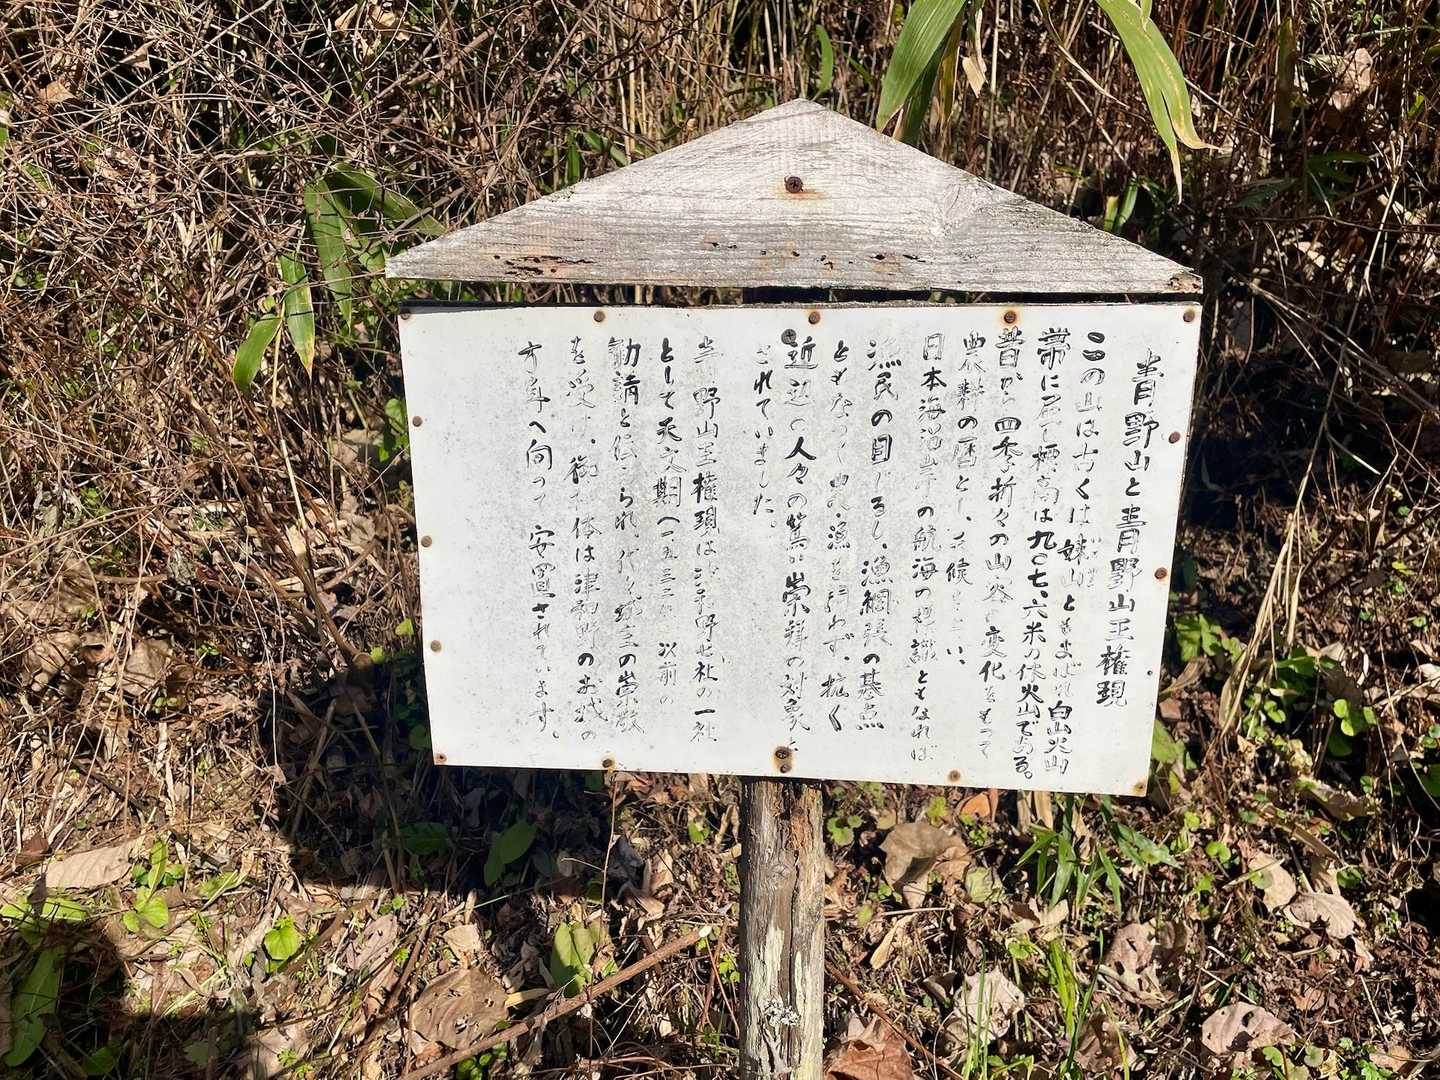 青野山と青野山王権現
この山は古くは妹山とよばれ白山火山
帯に属て標高は九〇七、六米の休火山である。
昔から四季折々の山容の変化をもって
農耕の暦とし、
日本海沿岸の航海の標識ともなれば
漁民の目じるし、漁網張の基点
ともなつて山民、漁民を問わず、広く
近辺の人々の篤い崇拝の対象と
されていました。
青野山王権現は津和野七社の一社
として天文期(一五三二 以前の
勧請と伝えられ、代々城主の崇敬
を受け、御 体は津和野のお城の
方角へ向って安置されています。